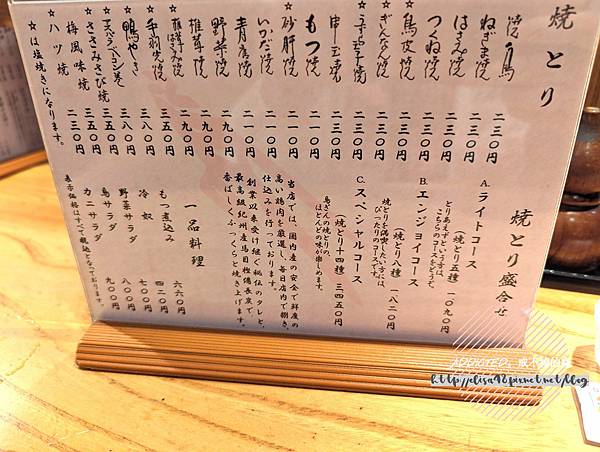 焼とり
焼き鳥
ねぎま焼 二三〇円
はさみ焼 二三〇円
つくね焼 二三〇円
鳥皮焼 二三〇円
ぎんなん焼 二三〇円
うずら玉子焼
串玉焼 二三〇円
もつ焼 二一〇円
☆砂肝焼 二一〇円
いかだ焼 二一〇円
青唐焼 二一〇円
野菜焼 二九〇円
椎茸焼 二九〇円
☆手羽先焼 三八〇円
☆鴨やき 三八〇円
☆ささみさび焼 三五〇円
梅風味焼
☆ハツ焼 二三〇円
☆は塩焼きになります。
焼とり盛合せ
A.ライトコース
とりあえずという方は、
こちらのコースをどうぞ。
(焼とり五種)一〇九〇円
B.エンジョイコース
焼とりを満喫したい方には、
ぴったりのコースです。
(焼とり八種)一八二〇円
C.スペシャルコース
鳥ぎんの焼とりの、
ほとんどの味が楽しめます。
(焼とり十四種)三四五〇円
当店では、国内産の安全で鮮度の
高い鶏肉を厳選し、毎日店内で捌き、
仕込みを行っております。
創業以来受け継ぐ秘伝のタレと、
最高級紀州産馬目樫備長炭で、
香ばしくふっくらと焼き上げます。
一品料理
もつ煮込み 六六〇円
冷奴 四二〇円
野菜サラダ 七〇〇円
鳥サラダ 八〇〇円
カニサラダ 九〇〇円
表示価格はすべて税込となっております。
http://elisa98.pixnet.net/blog